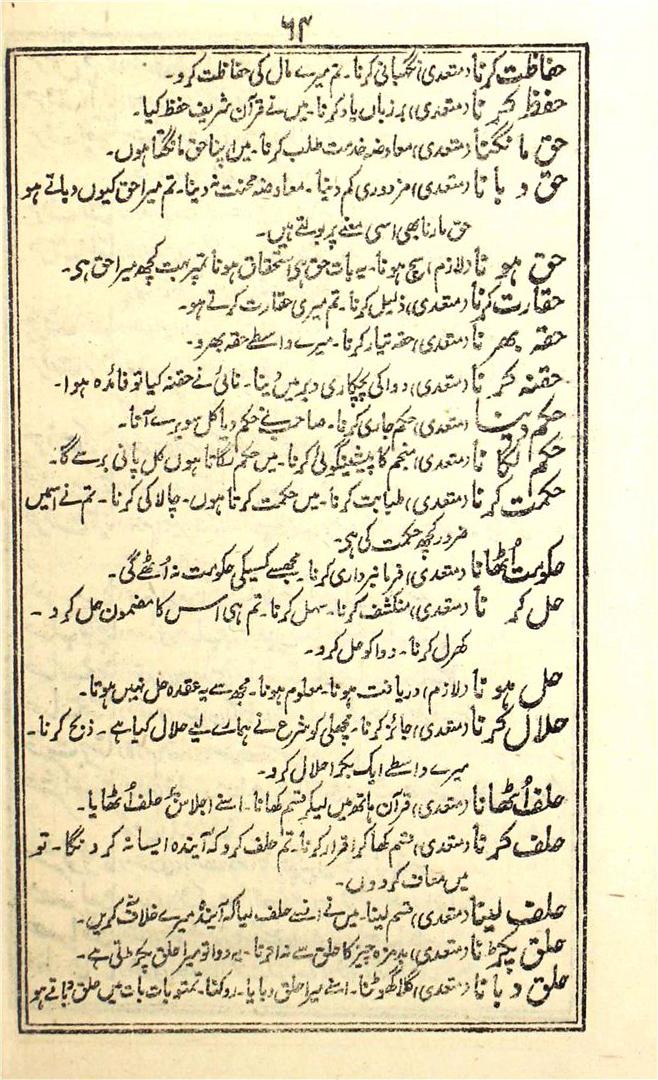 ۶۴
حفاظت کرنا (متعدی) نگہبانی کرنا۔ تم میرے مال کی حفاظت کرو۔
حفظ کرنا (متعدی) بر زباں یاد کرنا۔ میں نے قرآن شریف حفظ کیا۔
حق مانگنا (متعدی) معاوضہ خدمت طلب کرنا۔ میں اپنا حق مانگتا ہوں۔
حق دبانا (متعدی) مزدوری کم دینا۔ معاوضہ محنت نہ دینا۔ تم میرا حق کیوں دباتے ہو
حق مارنا بھی اسی معنے پر بولتے ہیں۔
حق ہونا (لازم) سچ ہونا۔ یہ بات حق ہی استحقاق ہونا تمپر بہت کچھ میرا حق ہی۔
حقارت کرنا (متعدی) ذلیل کرنا۔ تم میری حقارت کرتے ہو۔
حقہ بھرنا (متعدی) حقہ تیار کرنا۔ میرے واسطے حقہ بھرو۔
حقنہ کرنا (متعدی) دوا کی پچکاری دبر میں دینا۔ نائی نے حقنہ کیا تو فائدہ ہوا۔
حکم دینا (متعدی) حکم جاری کرنا۔ صاحب نے حکم دیا کل سویرے آنا۔
حکم لگانا (متعدی) منجم کا پیشینگوئی کرنا۔ میں حکم لگاتا ہوں کل پانی برسے گا۔
حکمت کرنا (متعدی) طبابت کرنا۔ میں حکمت کرتا ہوں۔ چالاکی کرنا۔ تم نے اسمیں
ضرور کچھ حکمت کی ہی۔
حکومت اُٹھانا (متعدی) فرمانبرداری کرنا۔ مجھسے کسیکی حکومت نہ اُٹھے گی۔
حل کرنا (متعدی) منکشف کرنا۔ سہل کرنا۔ تم ہی اس کا مضمون حل کرو۔
کھرل کرنا۔ دوا کو حل کرو۔
حل ہونا (لازم) دریافت ہونا۔ معلوم ہونا۔ مجھ سے یہ عقدہ حل نہیں ہوتا۔
حلال کرنا (متعدی) جائز کرنا۔ مچھلی کو شرع نے ہمارے لیے حلال کیا ہے۔ ذبح کرنا۔
میرے واسطے ایک بکرا حلال کرو۔
حلف اُٹھانا (متعدی) قرآن ہاتھ میں لیکر قسم کھانا۔ اسنے اجلاس پر حلف اُٹھایا۔
حلف کرنا (متعدی) قسم کھا کر اقرار کرنا۔ تم حلف کرو کہ آیندہ ایسا نہ کرونگا۔ تو
میں معاف کردوں۔
حلف لینا (متعدی) قسم لینا۔ میں نے انسے حلف لیا کہ آیندہ میرے خلاف نکریں۔
حلق پکڑنا (متعدی) بدمزہ چیز کا حلق سے نہ اترنا۔ یہ دوا تو میرا حلق پکڑتی ہے۔
حلق دبانا (متعدی) گلا گھونٹنا۔ اسنے میرا حلق دبایا۔ روکنا۔ تمتو بات بات میں حلق دباتے ہو